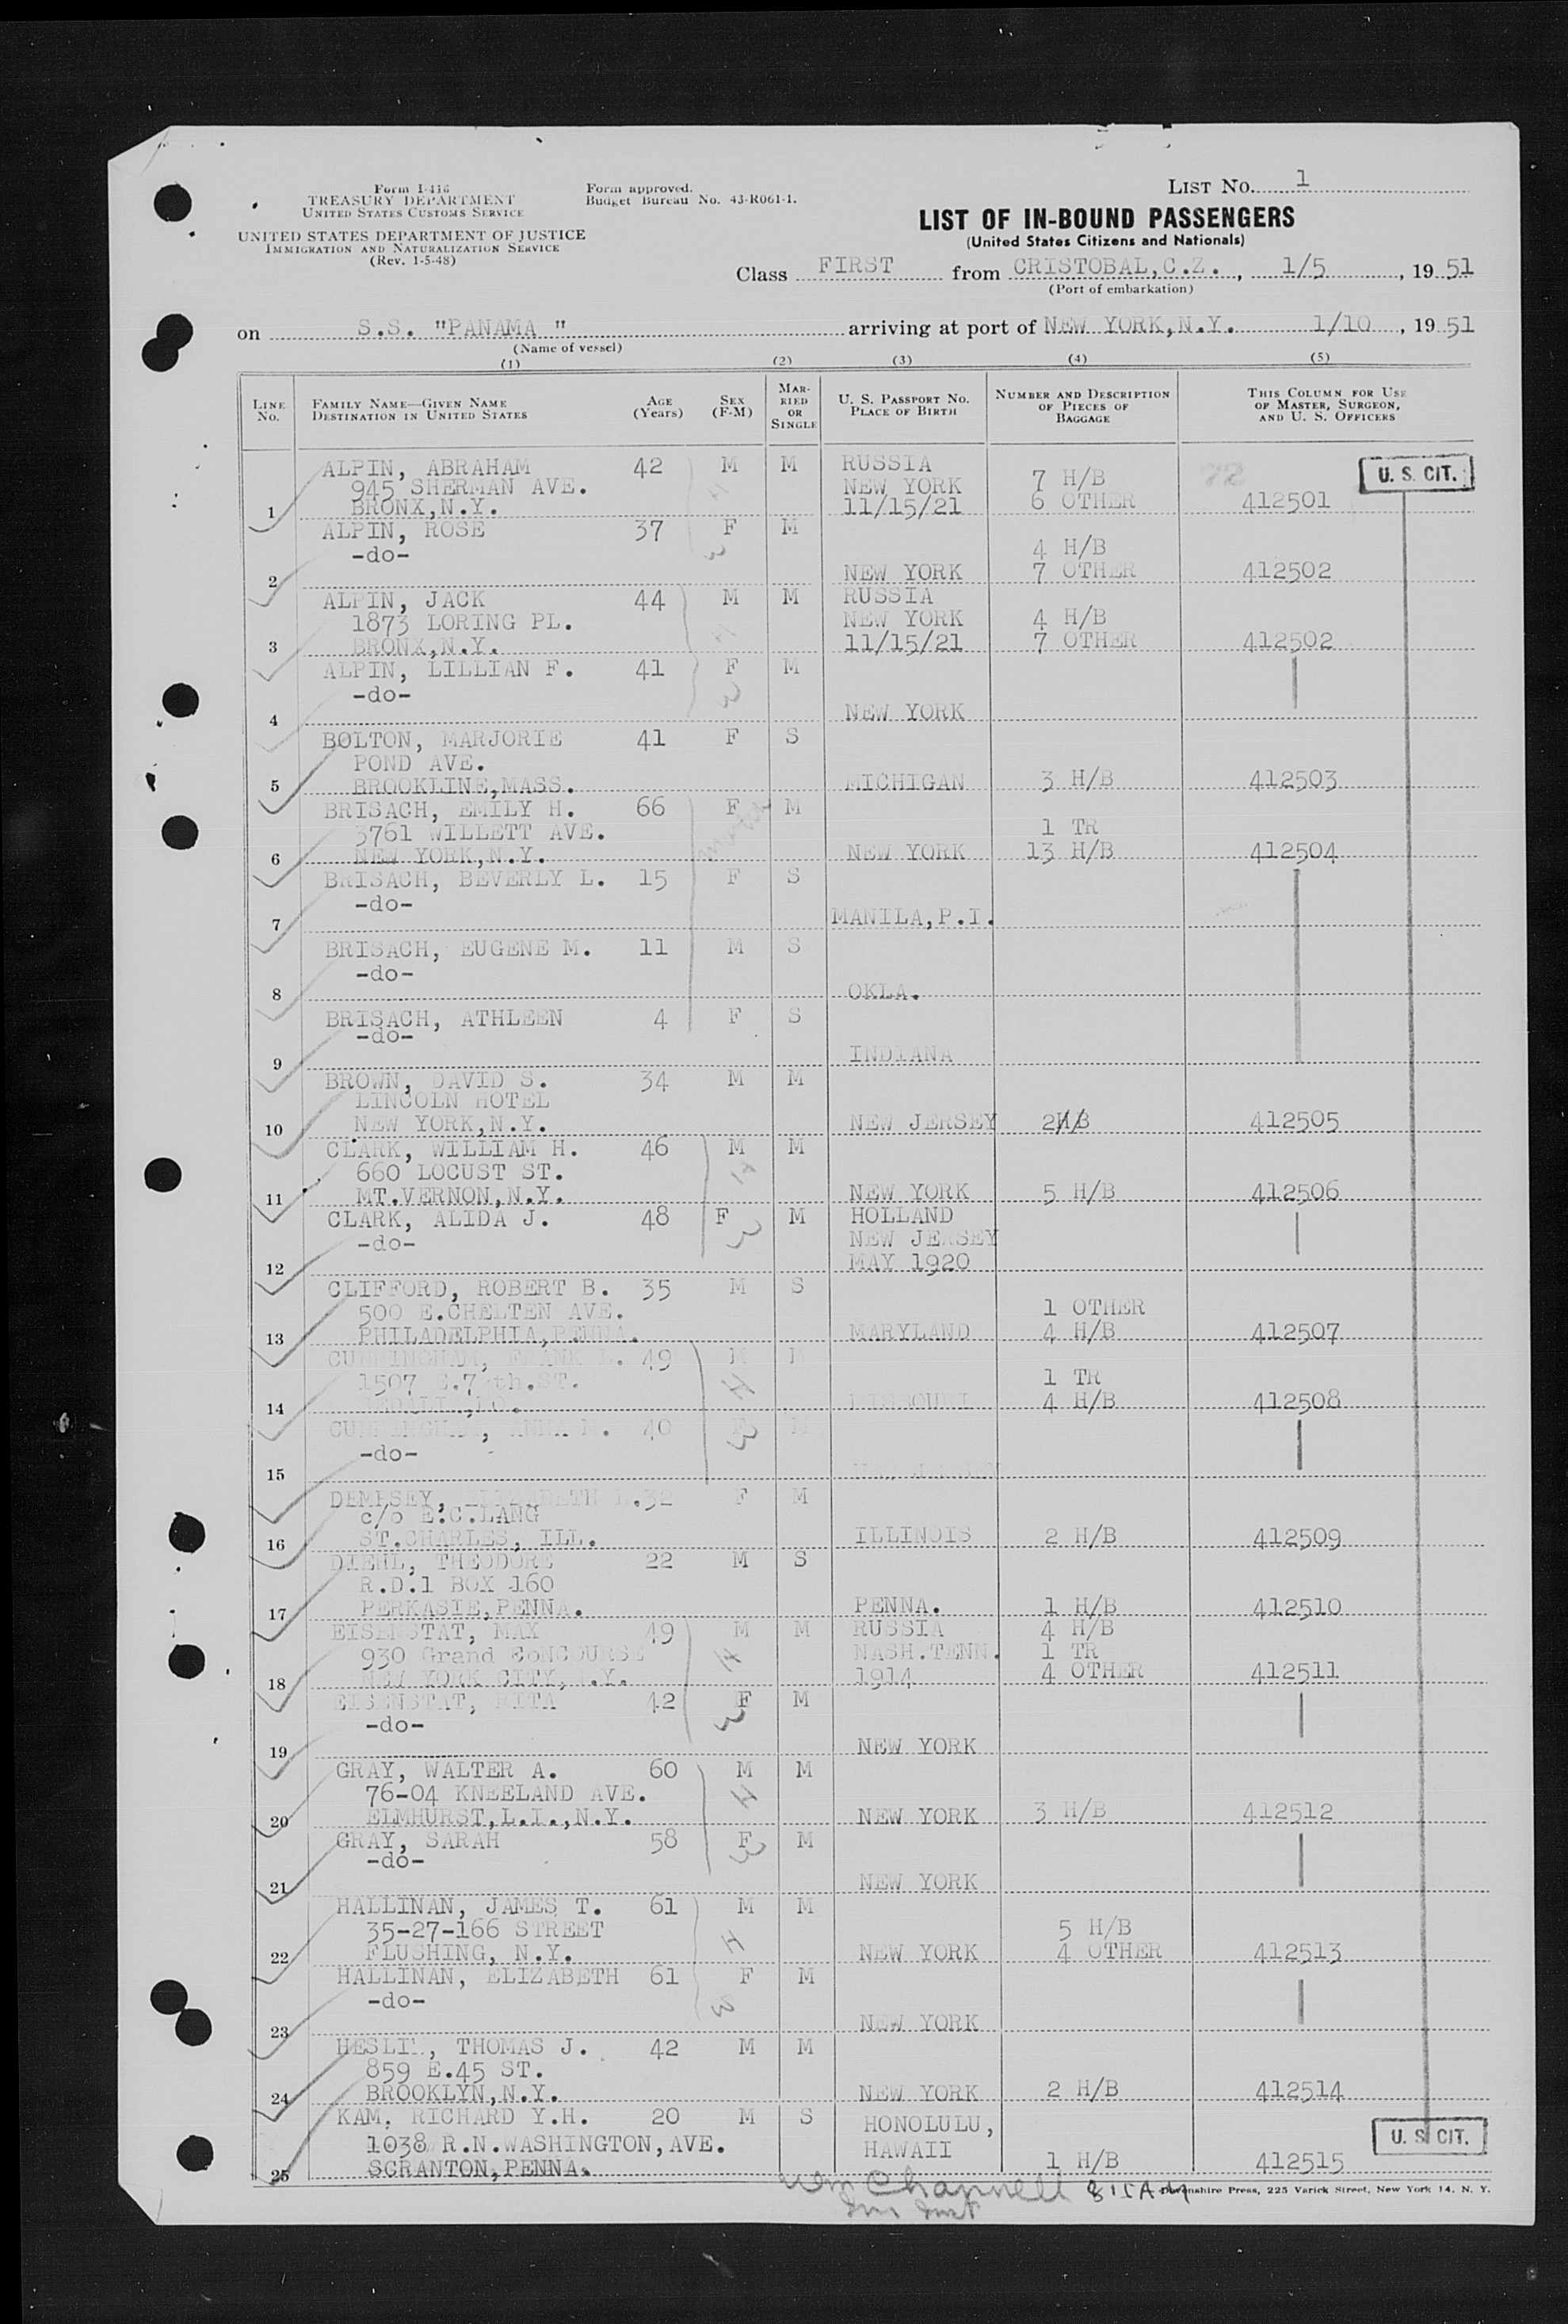 Form I-416
TREASURY DEPARTMENT
UNITED STATES CUSTOMS SERVICE
UNITED STATES DEPARTMENT OF JUSTICE
IMMIGRATION AND NATURALIZATION SERVICE
(Rev. 1-5-48)
Form approved.
Budget Bureau No. 43-R061-1.
LIST NO. 1
LIST OF IN-BOUND PASSENGERS
(United States Citizens and Nationals)
Class FIRST from CRISTOBAL,C.Z., 1/5, 1951
(Port of embarkation)
on S.S. "PANAMA " arriving at port of NEW YORK,N.Y. 1/10, 1951
(Name of vessel)
(1) (2) (3) (4) (5)
LINE NO. FAMILY NAME—GIVEN NAME DESTINATION IN UNITED STATES AGE (Years) SEX (F-M) MARRIED OR SINGLE U. S. PASSPORT NO. PLACE OF BIRTH NUMBER AND DESCRIPTION OF PIECES OF BAGGAGE THIS COLUMN FOR USE OF MASTER, SURGEON, AND U. S. OFFICERS
ALPIN, ABRAHAM 42 M M RUSSIA U. S. CIT.
945 SHERMAN AVE. NEW YORK 7 H/B
1 BRONX,N.Y. 11/15/21 6 OTHER 412501
ALPIN, ROSE 37 F M
-do- 4 H/B
2 NEW YORK 7 OTHER 412502
ALPIN, JACK 44 M M RUSSIA
1873 LORING PL. NEW YORK 4 H/B
3 BRONX,N.Y. 11/15/21 7 OTHER 412502
ALPIN, LILLIAN F. 41 F M
-do-
4 NEW YORK
BOLTON, MARJORIE 41 F S
POND AVE.
5 BROOKLINE,MASS. MICHIGAN 3 H/B 412503
BRISACH, EMILY H. 66 F M
3761 WILLETT AVE. 1 TR
6 NEW YORK,N.Y. NEW YORK 13 H/B 412504
BRISACH, BEVERLY L. 15 F S
-do-
7 MANILA,P.I.
BRISACH, EUGENE M. 11 M S
-do-
8 OKLA.
BRISACH, ATHLEEN 4 F S
-do-
9 INDIANA
BROWN, DAVID S. 34 M M
LINCOLN HOTEL
10 NEW YORK,N.Y. NEW JERSEY 2H/B 412505
CLARK, WILLIAM H. 46 M M
660 LOCUST ST.
11 MT.VERNON,N.Y. NEW YORK 5 H/B 412506
CLARK, ALIDA J. 48 F M HOLLAND
-do- NEW JERSEY
12 MAY 1920
CLIFFORD, ROBERT B. 35 M S
500 E.CHELTEN AVE. 1 OTHER
13 PHILADELPHIA,PENNA. MARYLAND 4 H/B 412507
CUNNINGHAM, FRANK 49 M M
1507 1 TR
14 MISSOURI 4 H/B 412508
CUNNINGHAM, ANNA 40 F M
-do-
15
DEMPSEY, ELIZABETH 32 F M
c/o E.C.LANG
16 ST.CHARLES, ILL. ILLINOIS 2 H/B 412509
DIEHL, THEODORE 22 M S
R.D.1 BOX 160
17 PERKASIE,PENNA. PENNA. 1 H/B 412510
EISENSTAT, MAX 49 M M RUSSIA 4 H/B
930 Grand CoNCOURSE NASH.TENN. 1 TR
18 NEW YORK CITY, N.Y. 1914 4 OTHER 412511
EISENSTAT, RITA 42 F M
-do-
19 NEW YORK
GRAY, WALTER A. 60 M M
76-04 KNEELAND AVE.
20 ELMHURST,L.I.,N.Y. NEW YORK 3 H/B 412512
GRAY, SARAH 58 F M
-do-
21 NEW YORK
HALLINAN, JAMES T. 61 M M
35-27-166 STREET 5 H/B
22 FLUSHING, N.Y. NEW YORK 4 OTHER 412513
HALLINAN, ELIZABETH 61 F M
-do-
23 NEW YORK
HESLIN, THOMAS J. 42 M M
859 E.45 ST.
24 BROOKLYN,N.Y. NEW YORK 2 H/B 412514
KAM, RICHARD Y.H. 20 M S HONOLULU,
1038 R.N.WASHINGTON,AVE. HAWAII U. S. CIT.
25 SCRANTON,PENNA. 1 H/B 412515
Wm Channell 815 AM
Devonshire Press, 225 Varick Street, New York 14, N. Y.